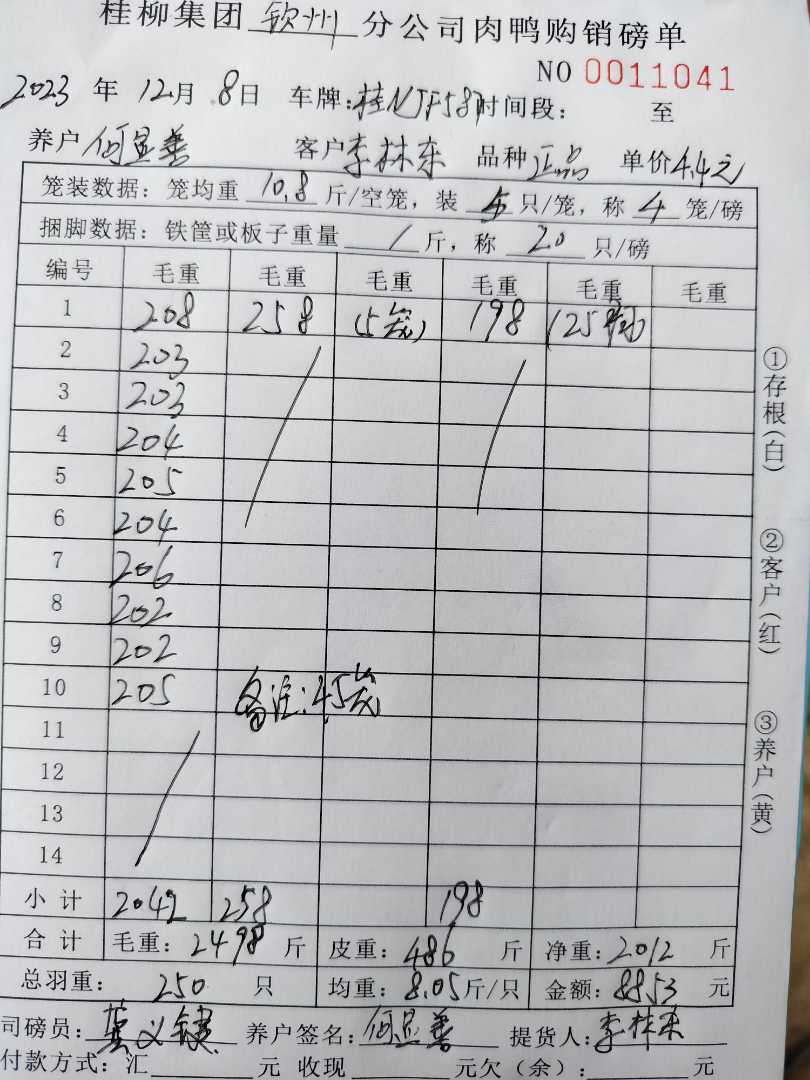 桂柳集团 钦州 分公司肉鸭购销磅单
NO 0011041
2023 年 12月 8日 车牌:桂NJF587时间段: 至
养户 何显善 客户李林东 品种 正品 单价4.4元
笼装数据:笼均重 10.8 斤/空笼,装 5 只/笼,称 4 笼/磅
捆脚数据:铁筐或板子重量 / 斤,称 20 只/磅
编号 毛重 毛重 毛重 毛重 毛重 毛重
1 208 258 (5笼) 198 (25
2 203
3 203
4 204
5 205
6 204
7 206
8 202
9 202
10 205 备注:45笼
11
12
13
14
小计 2042 258 198
合计 毛重: 2498 斤 皮重: 486 斤 净重:2012 斤
总羽重: 250 只 均重: 8.05斤/只 金额: 8853 元
司磅员: 养户签名:何显善 提货人:李林东
付款方式:汇 元 收现 元欠(余): 元
①存根(白)
②客户(红)
③养户(黄)